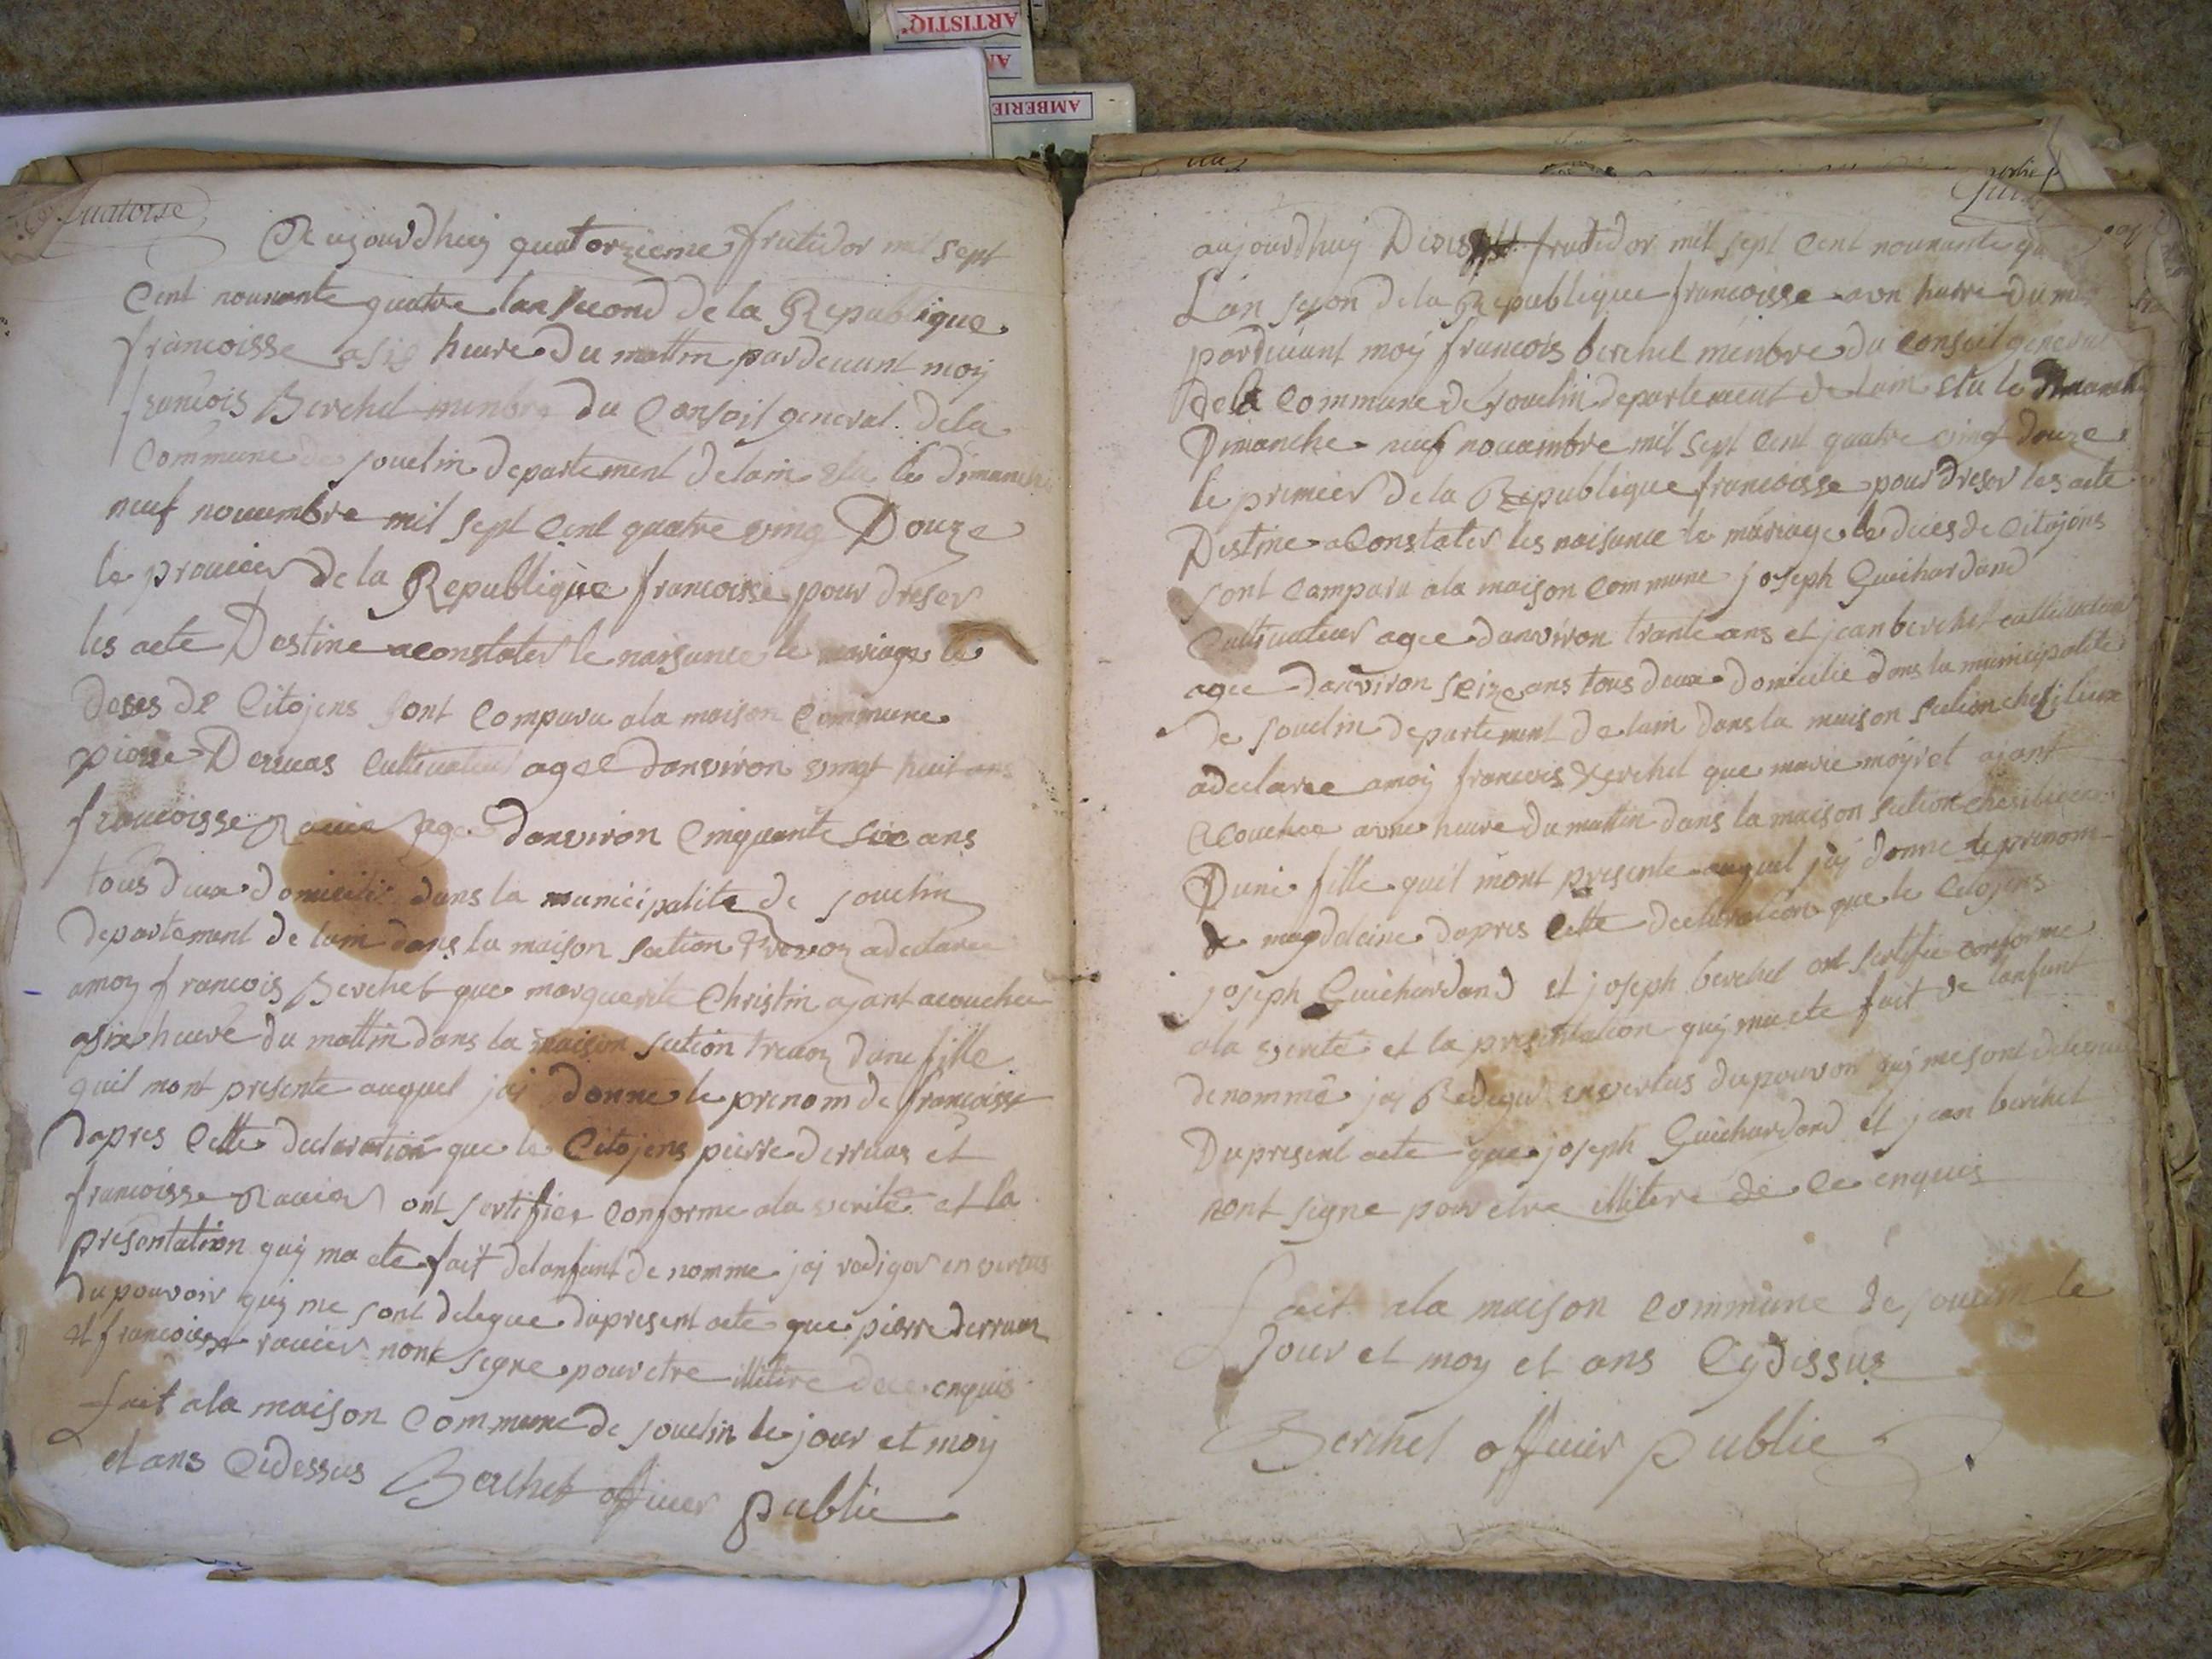 ARTISTIQ
AMBERIE
quatorse
Aujourdhuy quatorzieme frutidor mil sept
Cent nonante quatre lan second de la Republique
francoisse a sis heure du mattin pardeuant moy
francois Berchet menbre du Consoil general dela
Commune de souclin departement delain elu le dimanche
neuf nouembre mil sept Cent quatre ving Douze
le promier de la Republique francoisse pour dreser
les acte Destine aconstater le naisance le mariage le
deses de Citojens sont Comparu ala maison Commune
piorre Derruas Cultivateur agee danviron vingt huit ans
francoisse age danviron Cinquante six ans
tous deux domicilie dans la municipalite de souclin
departement de lain dans la maison section adeclaree
amoy francois Berchet que marguerite Christin ajant acouchee
asix heure du mattin dans la maison section dune fille
quil mont presente auquel jaj donne le prenom de francoisse
dapres Cette declaration que le Citojens pierre derruas et
francoisse ont sertifier Conforme ala verite et la
presentation quy ma ete fait delanfant de nomme jaj redigor en vertus
du pouvoir quy me sont delegue dupresent acte que piorre derruas
et francoisse nont segne pour etre illitere de ce enquis
fait ala maison Commune de souclin le jour et moy
et ans Cidessus Berchet officier public
aujourdhuy frutidor mil sept Cent nonante
Lan segon dela Republique francoisse a on heure du
pardeuant moy francois berchet menbre du Consoil general
dela Commune de souclin departement delain elu le
Dimanche neuf nouembre mil sept Cent quatre vingt douze
le premier de la Republique francoisse pour dreser les acte
Destine aConstater les naisance le mariage le deces de Citojens
sont Comparu ala maison Commune joseph Guichardand
Cultivateur agee danviron trante ans et jean berchet cultivateur
agee danviron seize ans tous deux domicilie dans la municipalite
de souclin departement de lain dans la maison section cheflieux
adeclaree amoy francois berchet que marie moyret ajant
acouchee a une heure du mattin dans la maison section
Dune fille quil mont presente auquel jaj donne le prenom
de magdeleine dapres Cette declaration que le Citojens
joseph Guichardand et joseph berchet ont sertifie conforme
ala verite et la presentation quy ma ete fait de lanfant
denomme jaj Rediger envertus dupouvoir quj me sont delegue
Dupresent acte que joseph Guichardand et jean berchet
nont segne pour etre illitere de ce enquis
fait ala maison Commune de souclin le
Jour et moy et ans Cydessus
Berchet officier public